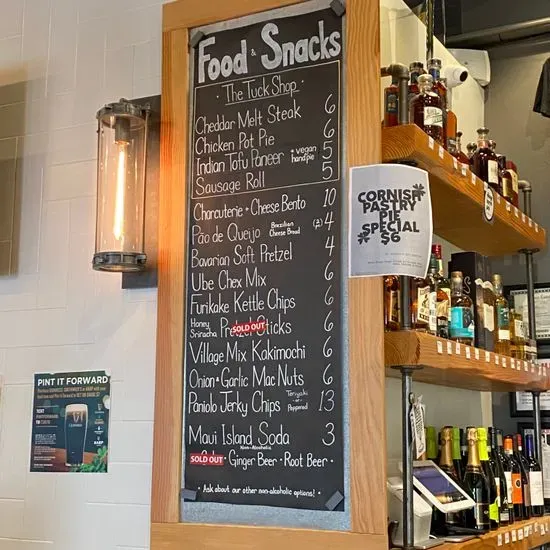 Food & Snacks
The Tuck Shop
Cheddar Melt Steak 6
Chicken Pot Pie 6
Indian Tofu Paneer • vegan hand pie 5
Sausage Roll 5
Charcuterie + Cheese Bento 10
Pão de Queijo Brazilian Cheese Bread (2) 4
Bavarian Soft Pretzel 4
Ube Chex Mix 6
Furikake Kettle Chips 6
Honey Sriracha Pretzel Sticks 6
SOLD OUT
Village Mix Kakimochi 6
Onion + Garlic Mac Nuts 6
Paniolo Jerky Chips Teriyaki or Peppered 13
Maui Island Soda 3
Non-Alcoholic
SOLD OUT
• Ginger Beer • Root Beer •
• Ask about our other non-alcoholic options! •
CORNISH
PASTRY
PIE
SPECIAL
$6
PINT IT FORWARD
GUINNESS